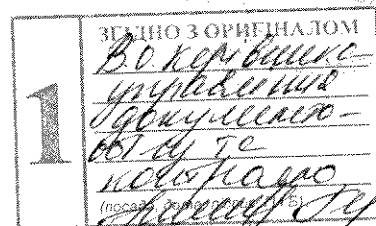 ЗГІДНО З ОРИГІНАЛОМ
1
В.о. керівника
управління
документо-
обігу та
контролю
(посада,